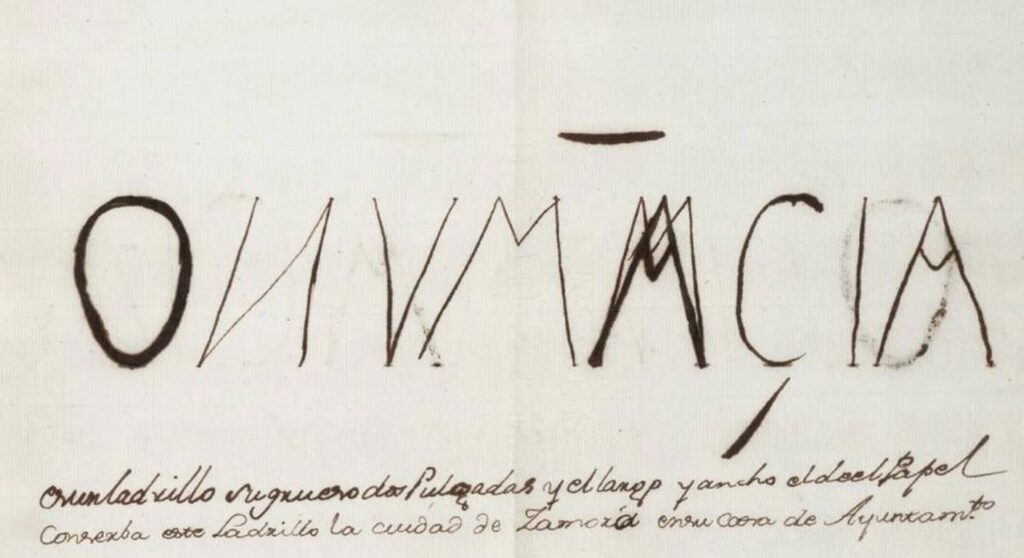 ONVMĀÇIA
es un ladrillo su grueso dos Pulgadas y el largo y ancho el de el Papel
Conserba este Ladrillo la ciudad de Zamora en su Casa de Ayuntam.to